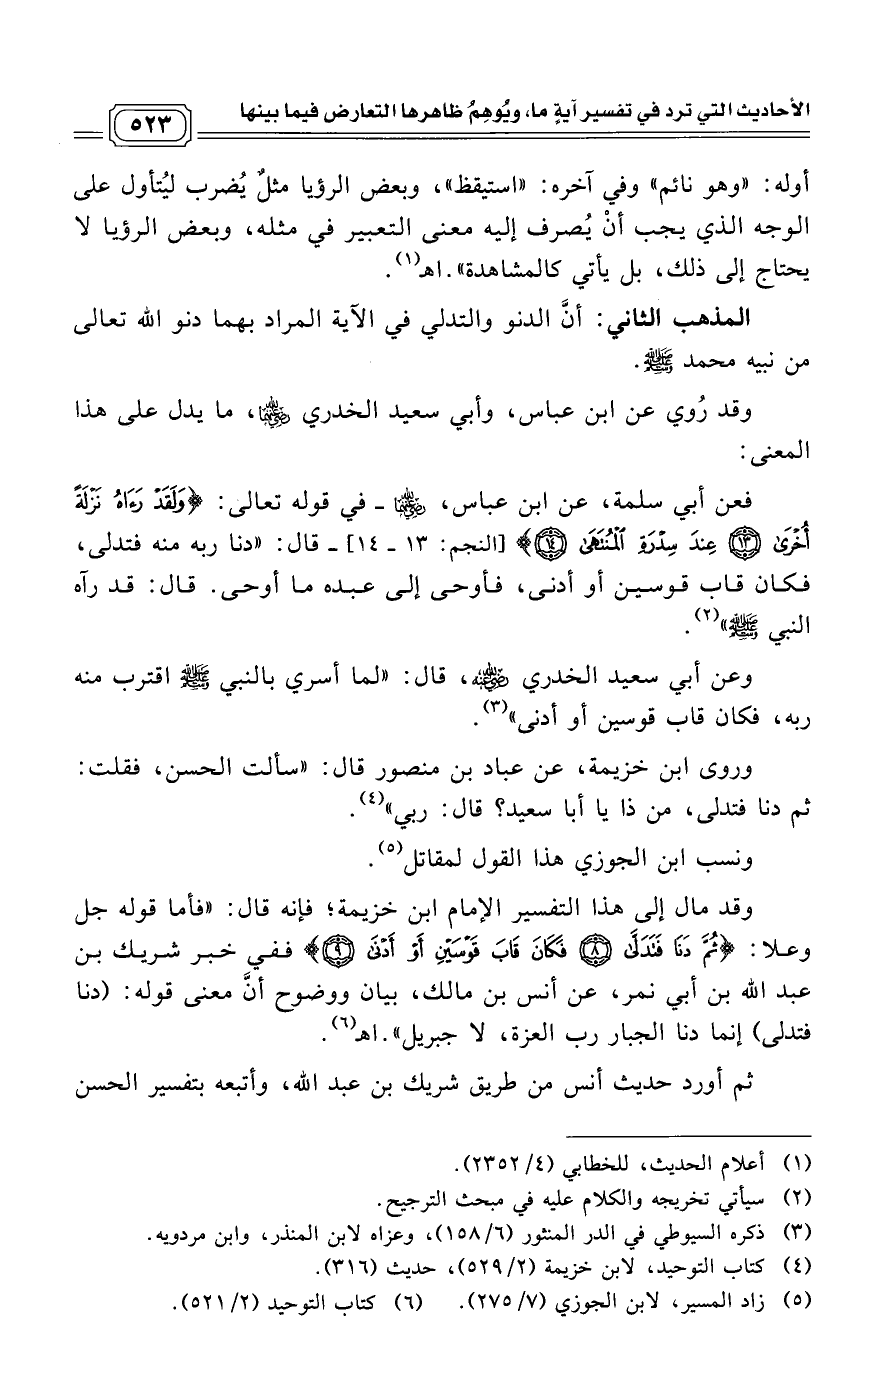 الأحاديث التي ترد في تفسير آيةٍ ما، ويُوهِمُ ظاهرها التعارض فيما بينها ٥٢٣
أوله: «وهو نائم» وفي آخره: «استيقظ»، وبعض الرؤيا مثلٌ يُضرب ليُتأول على
الوجه الذي يجب أنْ يُصرف إليه معنى التعبير في مثله، وبعض الرؤيا لا
يحتاج إلى ذلك، بل يأتي كالمشاهدة». اهـ(١).
المذهب الثاني: أنَّ الدنو والتدلي في الآية المراد بهما دنو الله تعالى
من نبيه محمد ﷺ.
وقد رُوي عن ابن عباس، وأبي سعيد الخدري رضي الله عنهما، ما يدل على هذا
المعنى:
فعن أبي سلمة، عن ابن عباس، رضي الله عنهما - في قوله تعالى: ﴿وَلَقَدْ رَءَاهُ نَزْلَةً
أُخْرَىٰ ١٣ عِندَ سِدْرَةِ ٱلْمُنتَهَىٰ ١٤﴾ [النجم: ١٣ - ١٤] - قال: «دنا ربه منه فتدلى،
فكان قاب قوسين أو أدنى، فأوحى إلى عبده ما أوحى. قال: قد رآه
النبي ﷺ»(٢).
وعن أبي سعيد الخدري رضي الله عنه، قال: «لما أسري بالنبي ﷺ اقترب منه
ربه، فكان قاب قوسين أو أدنى»(٣).
وروى ابن خزيمة، عن عباد بن منصور قال: «سألت الحسن، فقلت:
ثم دنا فتدلى، من ذا يا أبا سعيد؟ قال: ربي»(٤).
ونسب ابن الجوزي هذا القول لمقاتل(٥).
وقد مال إلى هذا التفسير الإمام ابن خزيمة؛ فإنه قال: «فأما قوله جل
وعلا: ﴿ثُمَّ دَنَا فَتَدَلَّىٰ ٨ فَكَانَ قَابَ قَوْسَيْنِ أَوْ أَدْنَىٰ ٩﴾ ففي خبر شريك بن
عبد الله بن أبي نمر، عن أنس بن مالك، بيان ووضوح أنَّ معنى قوله: (دنا
فتدلى) إنما دنا الجبار رب العزة، لا جبريل». اهـ(٦).
ثم أورد حديث أنس من طريق شريك بن عبد الله، وأتبعه بتفسير الحسن
(١) أعلام الحديث، للخطابي (٤/ ٢٣٥٢).
(٢) سيأتي تخريجه والكلام عليه في مبحث الترجيح.
(٣) ذكره السيوطي في الدر المنثور (٦/ ١٥٨)، وعزاه لابن المنذر، وابن مردويه.
(٤) كتاب التوحيد، لابن خزيمة (٢/ ٥٢٩)، حديث (٣١٦).
(٥) زاد المسير، لابن الجوزي (٧/ ٢٧٥). (٦) كتاب التوحيد (٢/ ٥٢١).